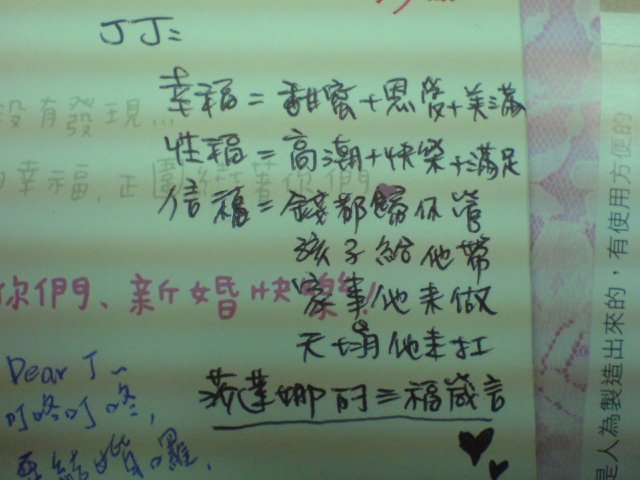 JJ=
幸福=甜蜜+恩愛+美滿
性福=高潮+快樂+滿足
信福=錢都歸你管
孩子給他帶
家事他來做
天塌他來扛
莎達娜的三福箴言
沒有發現
幸福,正圍繞著你們
你們、新婚快樂!
Dear J~
叮咚叮咚,
要結婚囉,
是人為製造出來的,有使用方便的